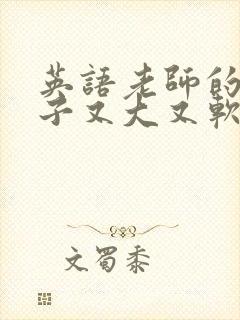 英語老師的
子又大又軟
文蜀黍